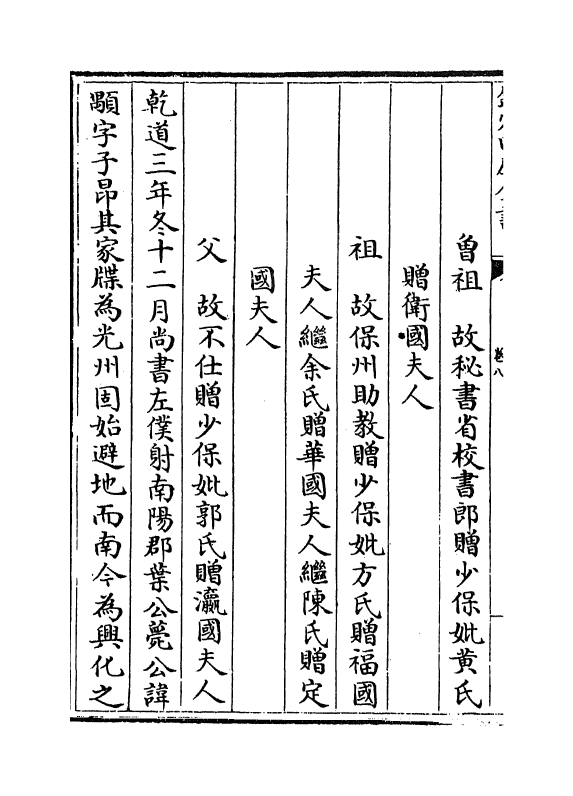 曾祖　故秘書省校書郎贈少保妣黄氏
贈衛國夫人
祖　故保州助教贈少保妣方氏贈福國
夫人繼余氏贈華國夫人繼陳氏贈定
國夫人
父　故不仕贈少保妣郭氏贈瀛國夫人
乾道三年冬十二月尚書左僕射南陽郡葉公薨公諱
顒字子昂其家牒為光州固始避地而南今為興化之
卷八